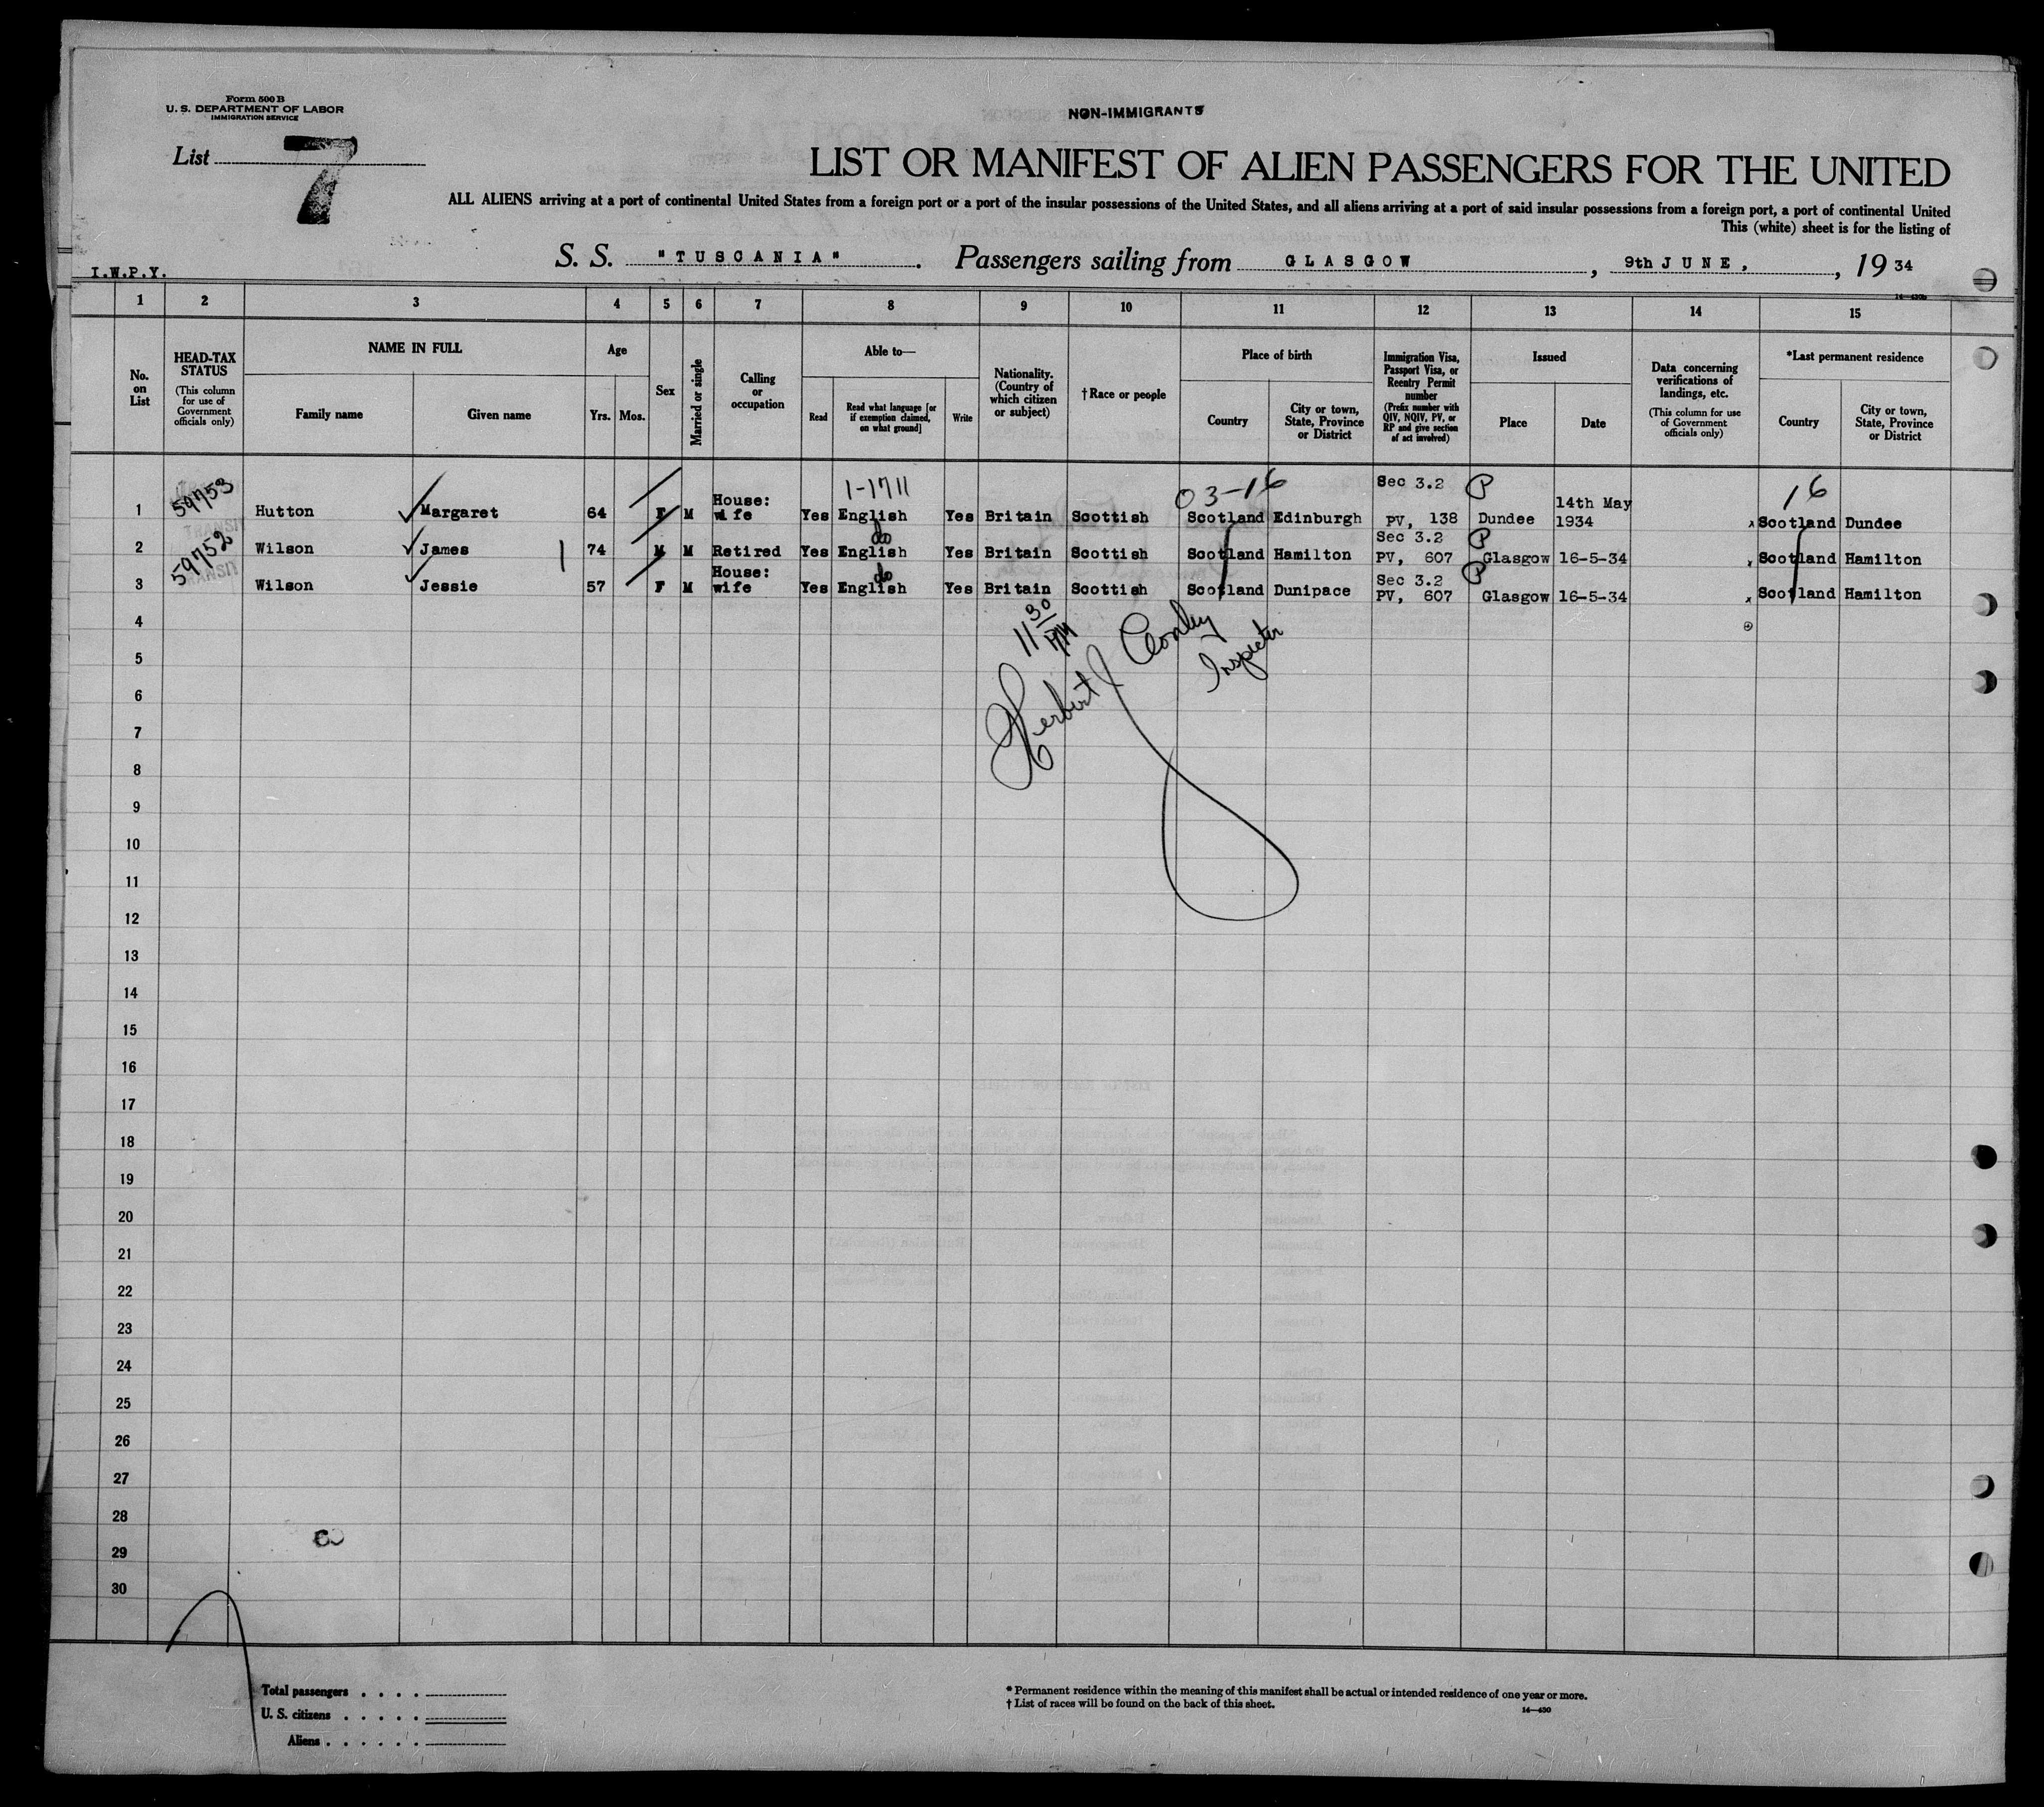 Form 500 B
U. S. DEPARTMENT OF LABOR
IMMIGRATION SERVICE
NON-IMMIGRANTS
List 7
LIST OR MANIFEST OF ALIEN PASSENGERS FOR THE UNITED
ALL ALIENS arriving at a port of continental United States from a foreign port or a port of the insular possessions of the United States, and all aliens arriving at a port of said insular possessions from a foreign port, a port of continental United
This (white) sheet is for the listing of
S. S. "TUSCANIA". Passengers sailing from GLASGOW, 9th JUNE, , 19 34
I.W.P.Y.
1 2 3 4 5 6 7 8 9 10 11 12 13 14 15
No. on List
HEAD-TAX STATUS
(This column for use of Government officials only)
NAME IN FULL
Family name
Given name
Age
Yrs. Mos.
Sex
Married or single
Calling or occupation
Able to—
Read
Read what language [or if exemption claimed, on what ground]
Write
Nationality. (Country of which citizen or subject)
† Race or people
Place of birth
Country
City or town, State, Province or District
Immigration Visa, Passport Visa, or Reentry Permit number
(Prefix number with QIV, NQIV, PV, or RP and give section of act involved)
Issued
Place
Date
Data concerning verifications of landings, etc.
(This column for use of Government officials only)
*Last permanent residence
Country
City or town, State, Province or District
1-1711
03-16
16
1 59753 Hutton Margaret 64 F M House: wife Yes English Yes Britain Scottish Scotland Edinburgh Sec 3.2 PV, 138 P Dundee 14th May 1934 x Scotland Dundee
TRANSIT
2 59752 Wilson James 74 M M Retired Yes English do Yes Britain Scottish Scotland Hamilton Sec 3.2 PV, 607 P Glasgow 16-5-34 x Scotland Hamilton
TRANSIT
3 Wilson Jessie 57 F M House: wife Yes English do Yes Britain Scottish Scotland Dunipace Sec 3.2 PV, 607 P Glasgow 16-5-34 x Scotland Hamilton
4
11 30
Herbert
Inspector
5
6
7
8
9
10
11
12
13
14
15
16
17
18
19
20
21
22
23
24
25
26
27
28
29
30
Total passengers . . . .
U. S. citizens . . . . .
Aliens . . . . . .
* Permanent residence within the meaning of this manifest shall be actual or intended residence of one year or more.
† List of races will be found on the back of this sheet.
14—430